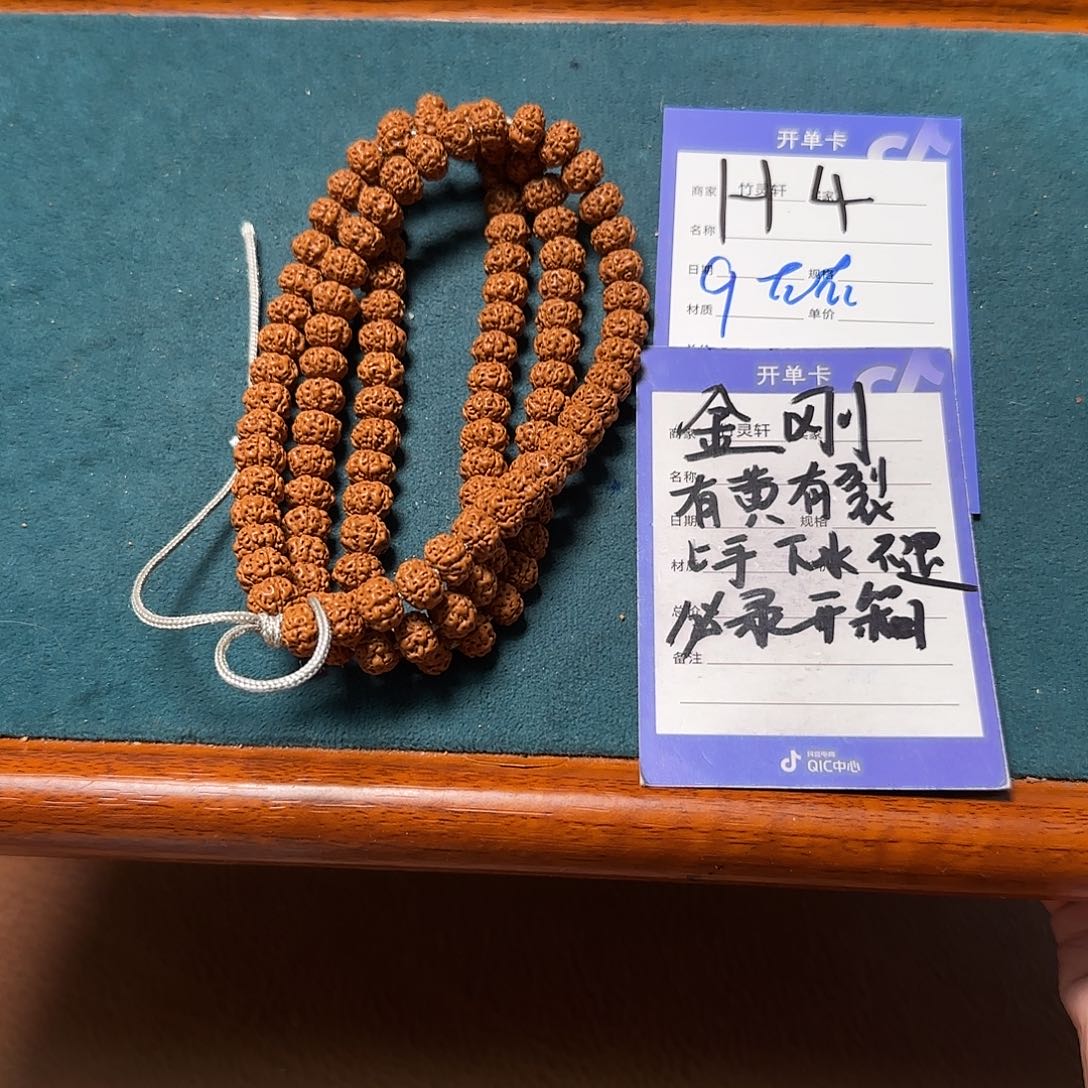 开单卡
商家 竹灵轩
H4
名称
日期 规格
9
材质 单价
开单卡
金刚
商家 竹灵轩
名称
有黄有裂
日期 规格
上手下水不退
材质
必录开箱
备注
抖音电商
QIC中心